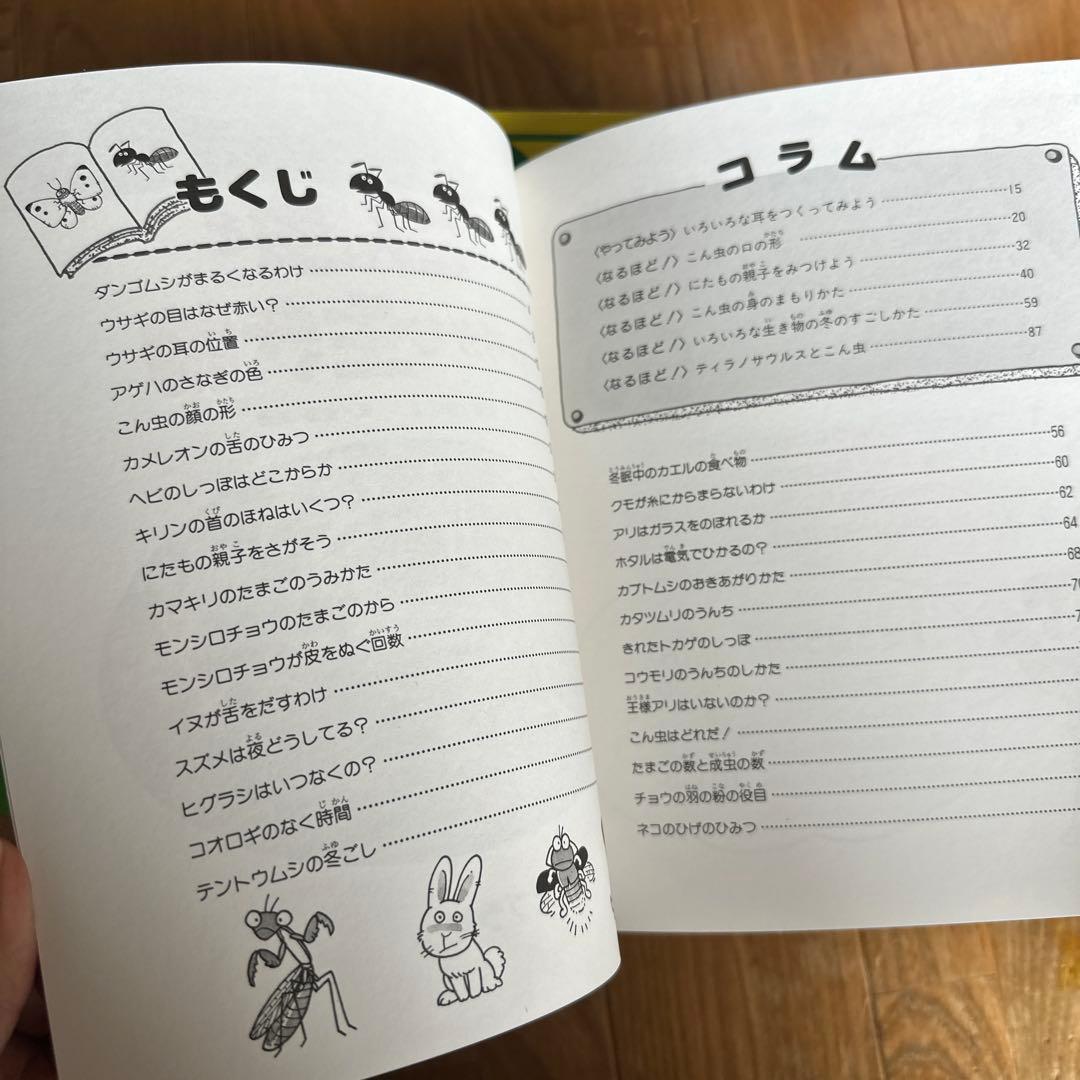 もくじ
ダンゴムシがまるくなるわけ
ウサギの目はなぜ赤い？
ウサギの耳の位置
アゲハのさなぎの色
こん虫の顔の形
カメレオンの舌のひみつ
ヘビのしっぽはどこからか
キリンの首のほねはいくつ？
にたもの親子をさがそう
カマキリのたまごのうみかた
モンシロチョウのたまごのから
モンシロチョウが皮をぬぐ回数
イヌが舌をだすわけ
スズメは夜どうしてる？
ヒグラシはいつなくの？
コオロギのなく時間
テントウムシの冬ごし
コラム
〈やってみよう〉いろいろな耳をつくってみよう 15
〈なるほど！〉こん虫の口の形 20
〈なるほど！〉にたもの親子をみつけよう 32
〈なるほど！〉こん虫の身のまもりかた 40
〈なるほど！〉いろいろな生き物の冬のすごしかた 59
〈なるほど！〉ティラノサウルスとこん虫 87
冬眠中のカエルの食べ物 56
クモが糸にからまらないわけ 60
アリはガラスをのぼれるか 62
ホタルは電気でひかるの？ 64
カブトムシのおきあがりかた 68
カタツムリのうんち
きれたトカゲのしっぽ
コウモリのうんちのしかた
王様アリはいないのか？
こん虫はどれだ！
たまごの数と成虫の数
チョウの羽の粉の役目
ネコのひげのひみつ